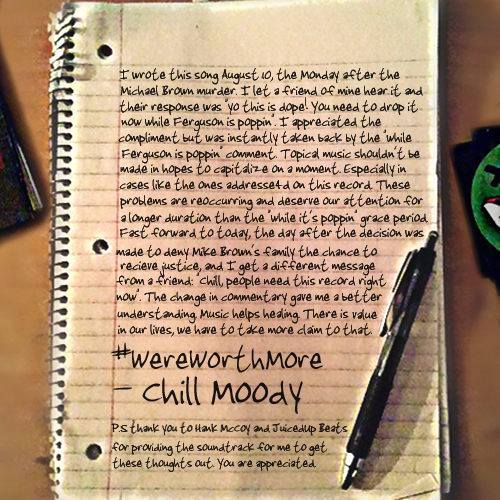 I wrote this song August 10, the Monday after the
Michael Brown murder. I let a friend of mine hear it and
their response was "yo this is dope! You need to drop it
now while Ferguson is poppin". I appreciated the
compliment but was instantly taken back by the "while
Ferguson is poppin" comment. Topical music shouldn't be
made in hopes to capitalize on a moment. Especially in
cases like the ones addresse4d on this record. These
problems are reoccurring and deserve our attention for
a longer duration than the "while it's poppin" grace period.
Fast forward to today, the day after the decision was
made to deny Mike Brown's family the chance to
recieve justice, and I get a different message
from a friend: "Chill, people need this record right
now". The change in commentary gave me a better
understanding. Music helps healing. There is value
in our lives, we have to take more claim to that.
#WereWorthMore
- Chill Moody
P.S thank you to Hank McCoy and JuicedUp Beats
for providing the soundtrack for me to get
these thoughts out. You are appreciated.